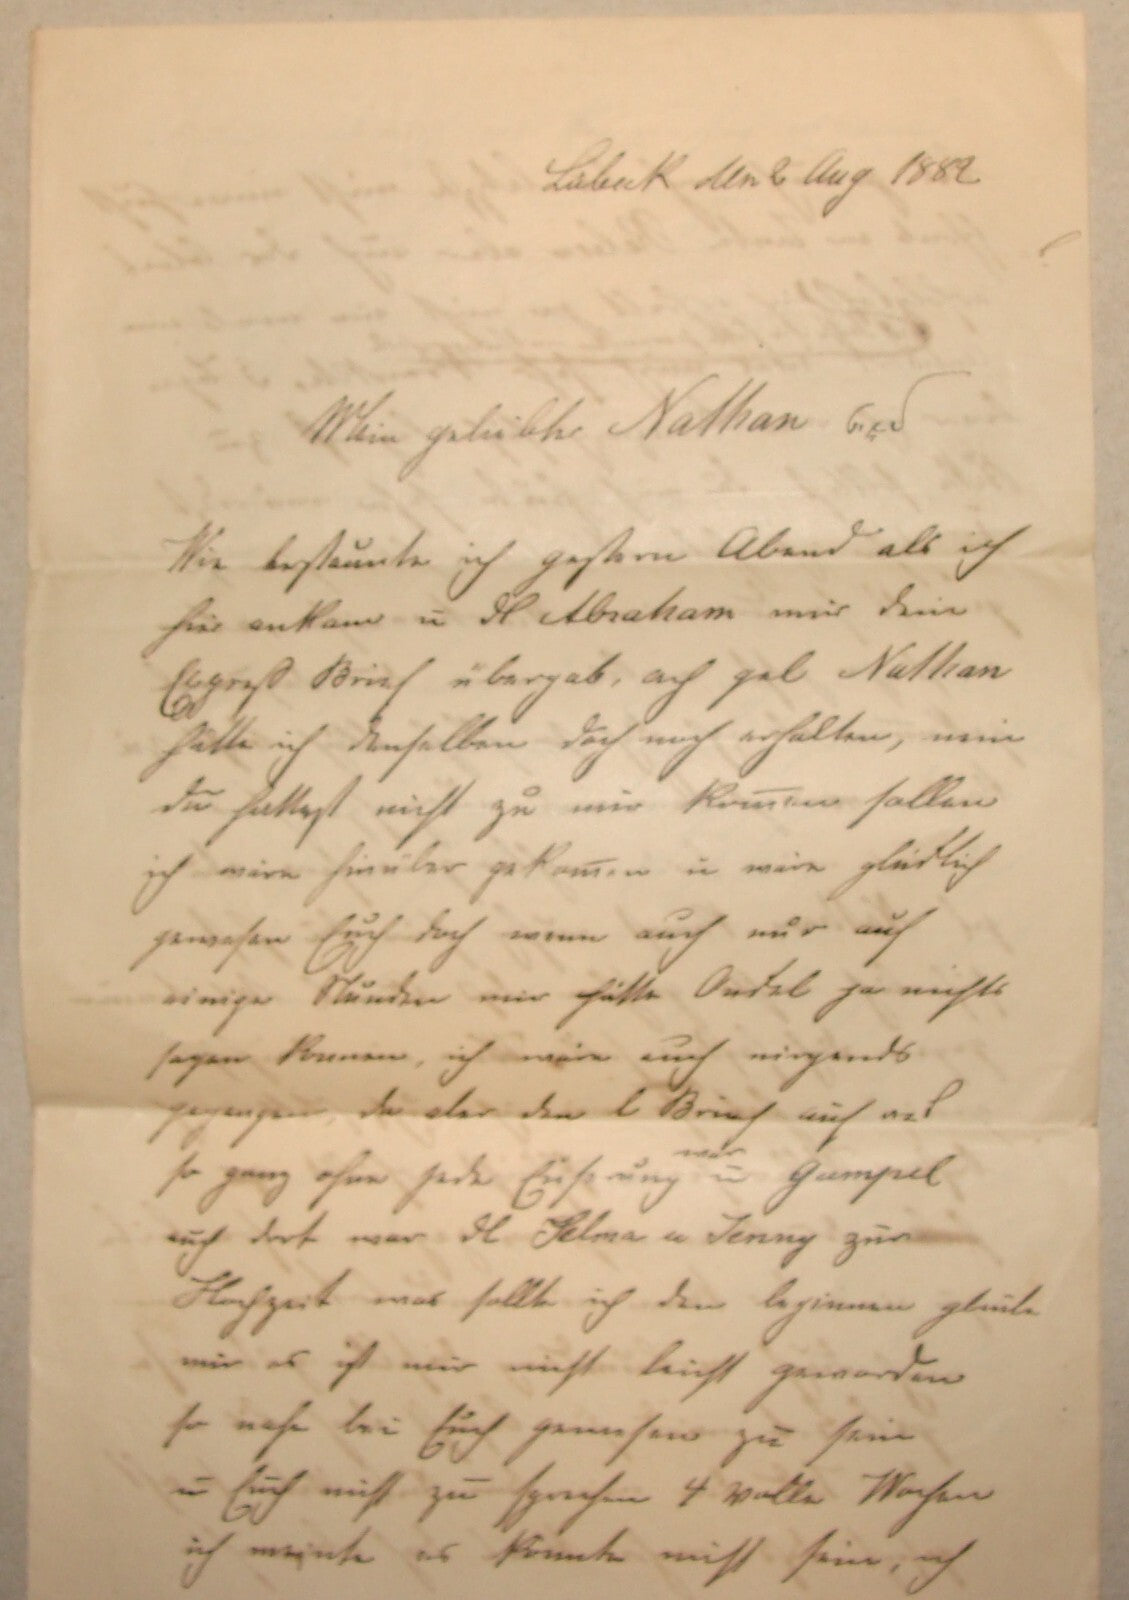 Lübeck den 2 Aug 1882
Mein geliebter Nathan
Wie bestaunte ich gestern Abend als ich
hier ankam u dl Abraham mir dein
Expreß Brief übergab, ach gel Nathan
hätte ich denselben doch noch erhalten, nein
du hättest nicht zu mir kom̅en sollen
ich wäre hinüber gekom̅en u wäre glücklich
gewesen Euch doch wenn auch nur auf
einige Stunden mir hätte Onkel ja nichts
sagen können, ich wäre auch nirgends
gegangen, da aber den l Brief auch
so ganz ohne jede war u Gumpel
auch dort war dl Selma u Jenny zur
Hochzeit was sollte ich den beginnen glaube
mir es ist mir nicht leicht geworden
so nahe bei Euch gewesen zu sein
u Euch nicht zu sprechen 4 volle Wochen
ich meinte es konnte nicht sein, ich